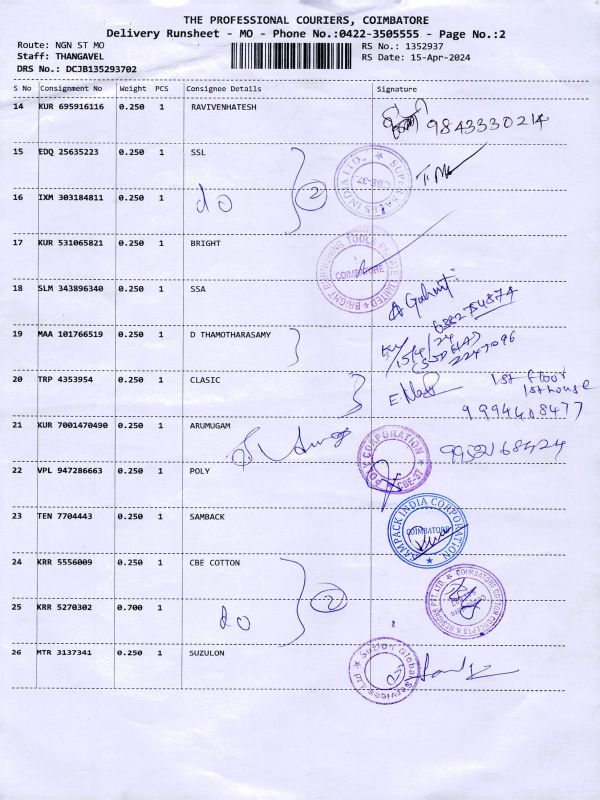 THE PROFESSIONAL COURIERS, COIMBATORE
Delivery Runsheet - MO - Phone No.:0422-3505555 - Page No.:2
Route: NGN ST MO
Staff: THANGAVEL
DRS No.: DCJB135293702
RS No.: 1352937
RS Date: 15-Apr-2024
S No Consignment No Weight PCS Consignee Details Signature
14 KUR 695916116 0.250 1 RAVIVENHATESH 9843330214
15 EDQ 25635223 0.250 1 SSL
16 IXM 303184811 0.250 1 do 2
17 KUR 531065821 0.250 1 BRIGHT
COIMBATORE
18 SLM 343896340 0.250 1 SSA
19 MAA 101766519 0.250 1 D THAMOTHARASAMY
15/4/24
20 TRP 4353954 0.250 1 CLASIC
1st floor
1st house
9994408477
21 KUR 7001470490 0.250 1 ARUMUGAM
22 VPL 947286663 0.250 1 POLY
POLY CORPORATION
CBE-37
23 TEN 7704443 0.250 1 SAMBACK
SAMPACK INDIA CORPORATION
COIMBATORE
24 KRR 5556009 0.250 1 CBE COTTON
25 KRR 5270302 0.700 1 do 2
26 MTR 3137341 0.250 1 SUZULON